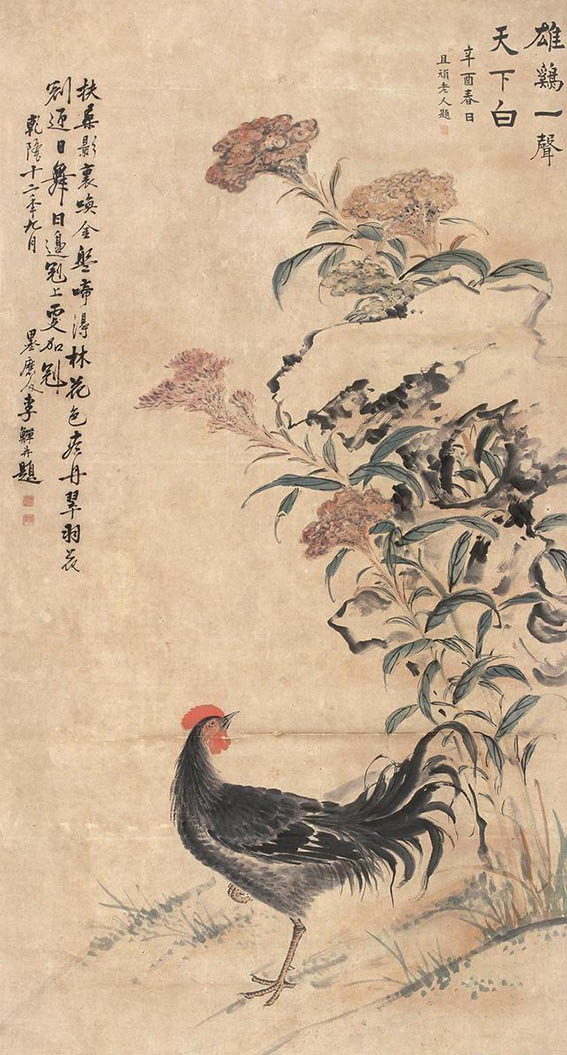 雄鷄一聲
天下白
辛酉春日
且頑老人題
扶桒影裏喚金盤啼得林花色丹翠羽花
冠迎日舞日邊冠上更加冠
乾隆十二年九月
墨磨人李鱓并題